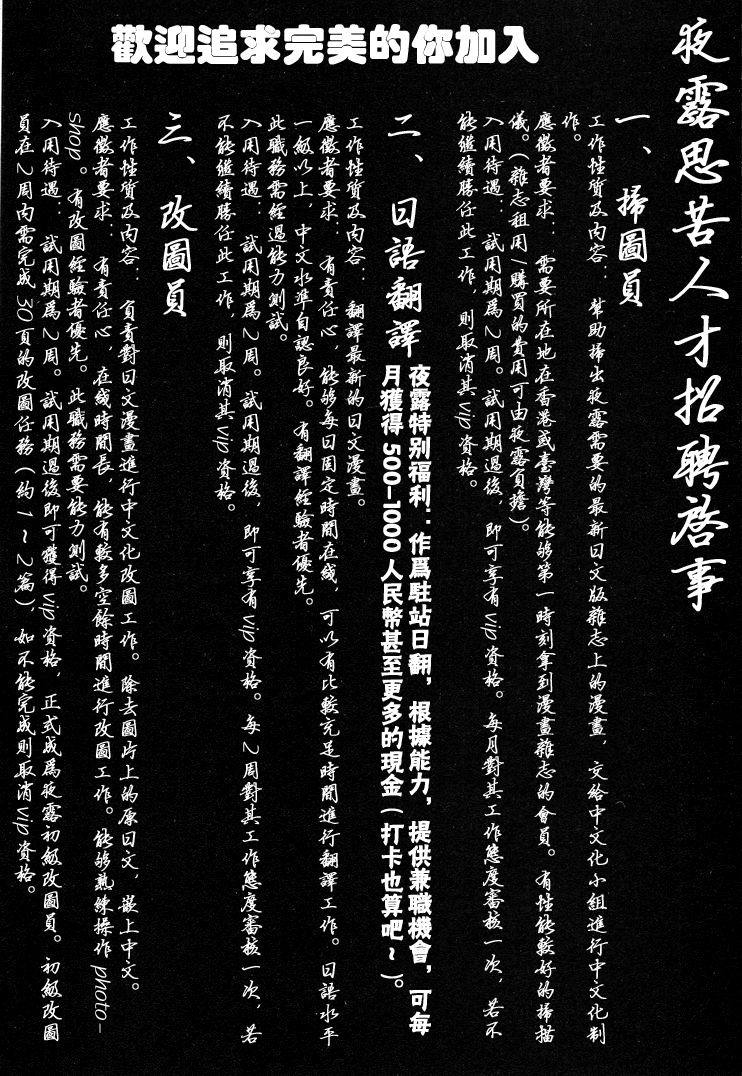 歡迎追求完美的你加入
夜露思苦人才招聘啓事
一、掃圖員
工作性質及内容：幫助掃出夜露需要的最新日文版雜志上的漫畫，交給中文化小組進行中文化制
作。
應徵者要求：需要所在地在香港或臺灣等能够第一時刻拿到漫畫雜志的會員。有性能較好的掃描
儀。（雜志租用/購買的費用可由夜露負擔）。
入用待遇：試用期爲2周。試用期過後，即可享有vip資格。每月對其工作態度審核一次，若不
能繼續勝任此工作，則取消其vip資格。
二、日語翻譯
夜露特别福利：作爲駐站日翻，根據能力，提供兼職機會，可每
月獲得500-1000人民幣甚至更多的現金（打卡也算吧~）。
工作性質及内容：翻譯最新的日文漫畫。
應徵者要求：有責任心，能够每日固定時間在綫，可以有比較充足時間進行翻譯工作。日語水平
一級以上，中文水準自認良好。有翻譯經驗者優先。
此職務需經過能力測試。
入用待遇：試用期爲2周。試用期過後，即可享有vip資格。每2周對其工作態度審核一次，若
不能繼續勝任此工作，則取消其vip資格。
三、改圖員
工作性質及内容：負責對日文漫畫進行中文化改圖工作。除去圖片上的原日文，嵌上中文。
應徵者要求：有責任心，在綫時間長，能有較多空餘時間進行改圖工作。能够熟練操作photo-
shop。有改圖經驗者優先。此職務需要能力測試。
入用待遇：試用期爲2周。試用期過後即可獲得vip資格，正式成爲夜露初級改圖員。初級改圖
員在2周内需完成30頁的改圖任務（約1~2篇），如不能完成則取消vip資格。